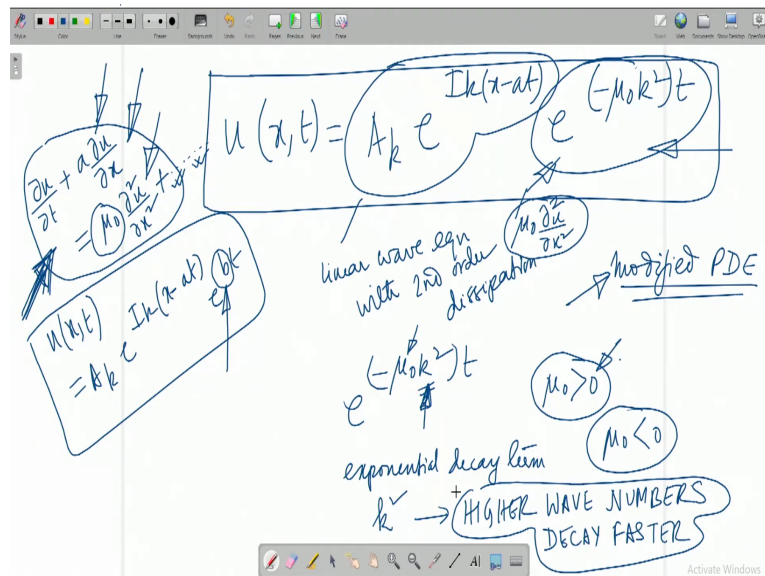 Style Color Line Eraser Backgrounds Undo Redo Pages Previous Next Erase Board Web Documents Show Desktop OpenBoard
u(x,t) = A_k e^{Ik(x-at)} e^{(-μ₀k²)t}
∂u/∂t + a ∂u/∂x
= μ₀ ∂²u/∂x² + ......
linear wave eqn
with 2nd order
dissipation
μ₀ ∂²u/∂x²
modified PDE
u(x,t)
= A_k e^{Ik(x-at)} e^{bt}
e^{(-μ₀k²)t}
μ₀>0
μ₀<0
exponential decay term
k² → HIGHER WAVE NUMBERS
DECAY FASTER
Activate Windows